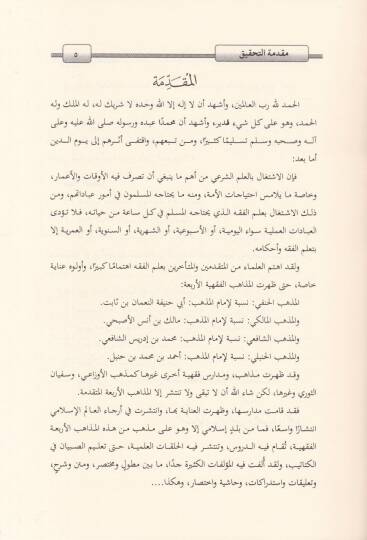 مقدمة التحقيق
٥
المُقَدِّمَة
الحمد لله رب العالمين، وأشهد أن لا إله إلا الله وحده لا شريك له، له الملك وله
الحمد، وهو على كل شيء قدير، وأشهد أن محمدًا عبده ورسوله صلى الله عليه وعلى
آله وصحبه وسلم تسليمًا كثيرًا، ومن تبعهم، واقتفى أثرهم إلى يوم الدين
أما بعد:
فإن الاشتغال بالعلم الشرعي من أهم ما ينبغي أن تصرف فيه الأوقات والأعمار،
وخاصة ما يلامس احتياجات الأمة، ومنه ما يحتاجه المسلمون في أمور عباداتهم، ومن
ذلك الاشتغال بعلم الفقه الذي يحتاجه المسلم في كل ساعة من حياته، فلا تؤدى
العبادات العملية سواء اليومية، أو الأسبوعية، أو الشهرية، أو السنوية، أو العمرية إلا
بتعلم الفقه وأحكامه.
ولقد اهتم العلماء من المتقدمين والمتأخرين بعلم الفقه اهتمامًا كبيرًا، وأولوه عناية
خاصة، حتى ظهرت المذاهب الفقهية الأربعة:
المذهب الحنفي: نسبة لإمام المذهب: أبي حنيفة النعمان بن ثابت.
والمذهب المالكي: نسبة لإمام المذهب: مالك بن أنس الأصبحي.
والمذهب الشافعي: نسبة لإمام المذهب: محمد بن إدريس الشافعي.
والمذهب الحنبلي: نسبة لإمام المذهب: أحمد بن محمد بن حنبل.
وقد ظهرت مذاهب، ومدارس فقهية أخرى غيرها كمذهب الأوزاعي، وسفيان
الثوري وغيرها، لكن شاء الله أن لا تبقى ولا تنتشر إلا المذاهب الأربعة المتقدمة.
فقد قامت مدارسها، وظهرت العناية بها، وانتشرت في أرجاء العالم الإسلامي
انتشارًا واسعًا، فما من بلدٍ إسلامي إلا وهو على مذهب من هذه المذاهب الأربعة
الفقهية، تُقام فيه الدروس، وتنتشر فيه الحلقات العلمية، حتى تعليم الصبيان في
الكتاتيب، ولقد أُلفت فيه المؤلفات الكثيرة جدًا، ما بين مطولٍ ومختصر، ومتن وشرح،
وتعليقات واستدراكات، وحاشية واختصار، وهكذا....